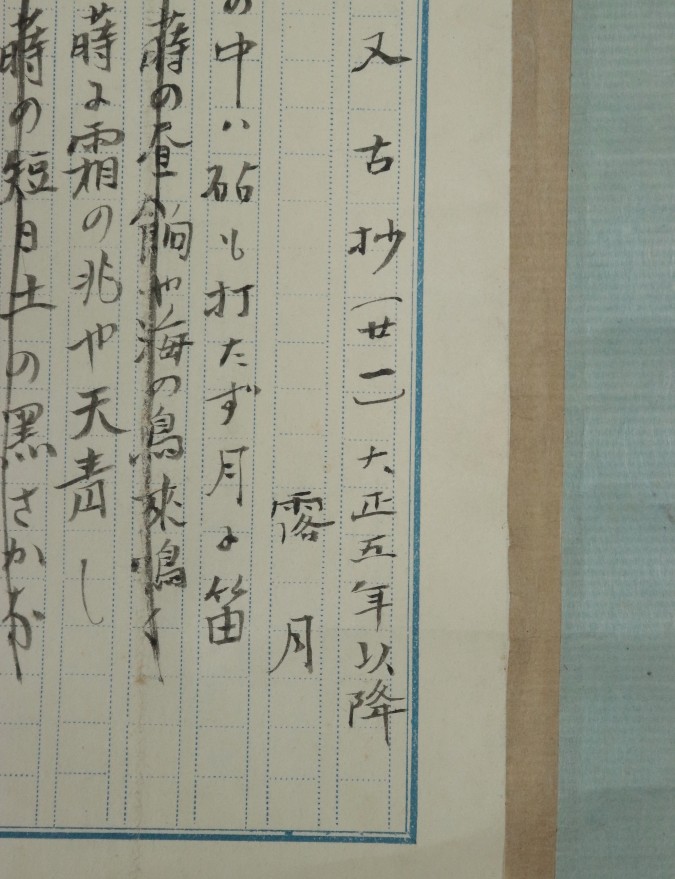 又古抄(廿一)大正五年以降
露月
の中ハ砧も打たず月に笛
蒔の昼餉や海の鳥来鳴く
蒔に霜の兆や天青し
蒔の短日土の黒さかな